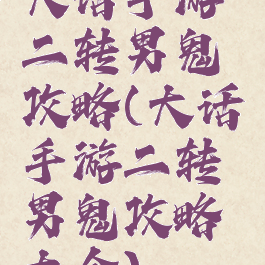 大话手游
二转男鬼
攻略(大话
手游二转
男鬼攻略
大全)